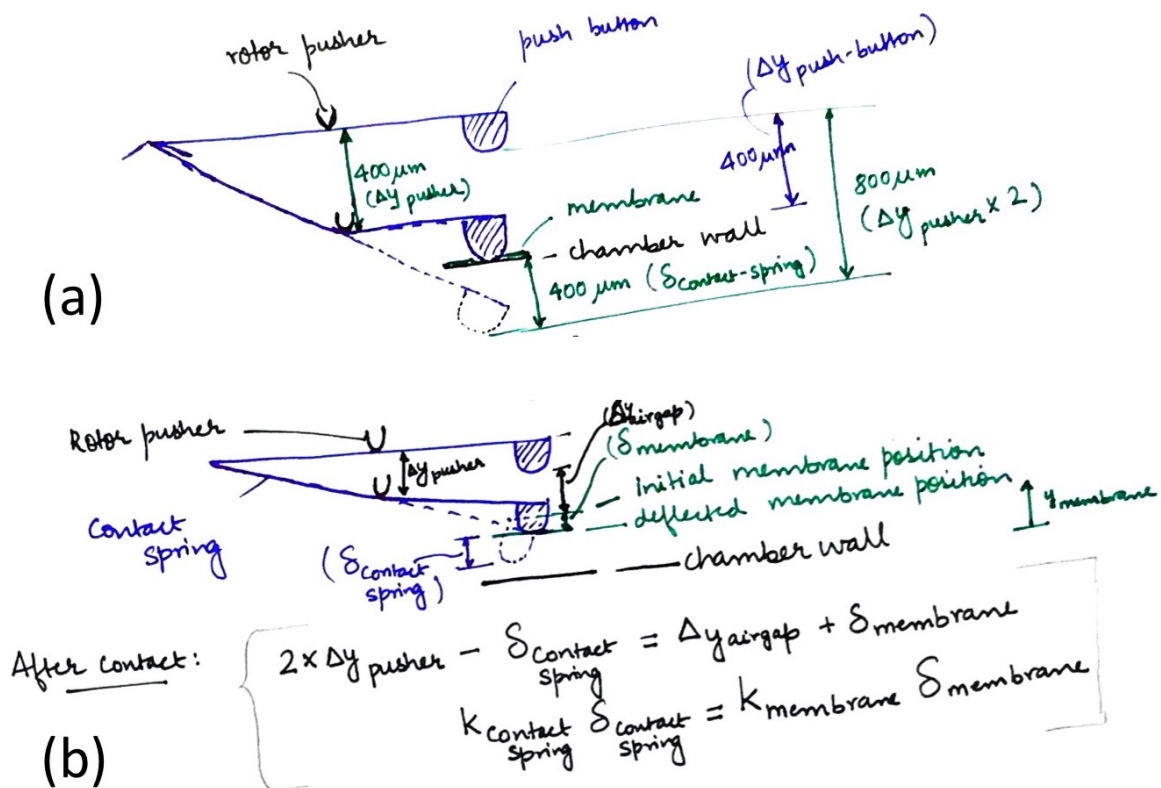 (a)
rotor pusher
push button
(Δy push-button)
400 μm
(Δy pusher)
400 μm
800 μm
(Δy pusher × 2)
membrane
chamber wall
400 μm (δ contact-spring)
(b)
Rotor pusher
Δy pusher
(Δy airgap)
(δ membrane)
initial membrane position
deflected membrane position
y membrane
Contact
spring
(δ contact
spring)
chamber wall
After contact:
2 × Δy pusher - δ contact spring = Δy airgap + δ membrane
k contact spring δ contact spring = k membrane δ membrane